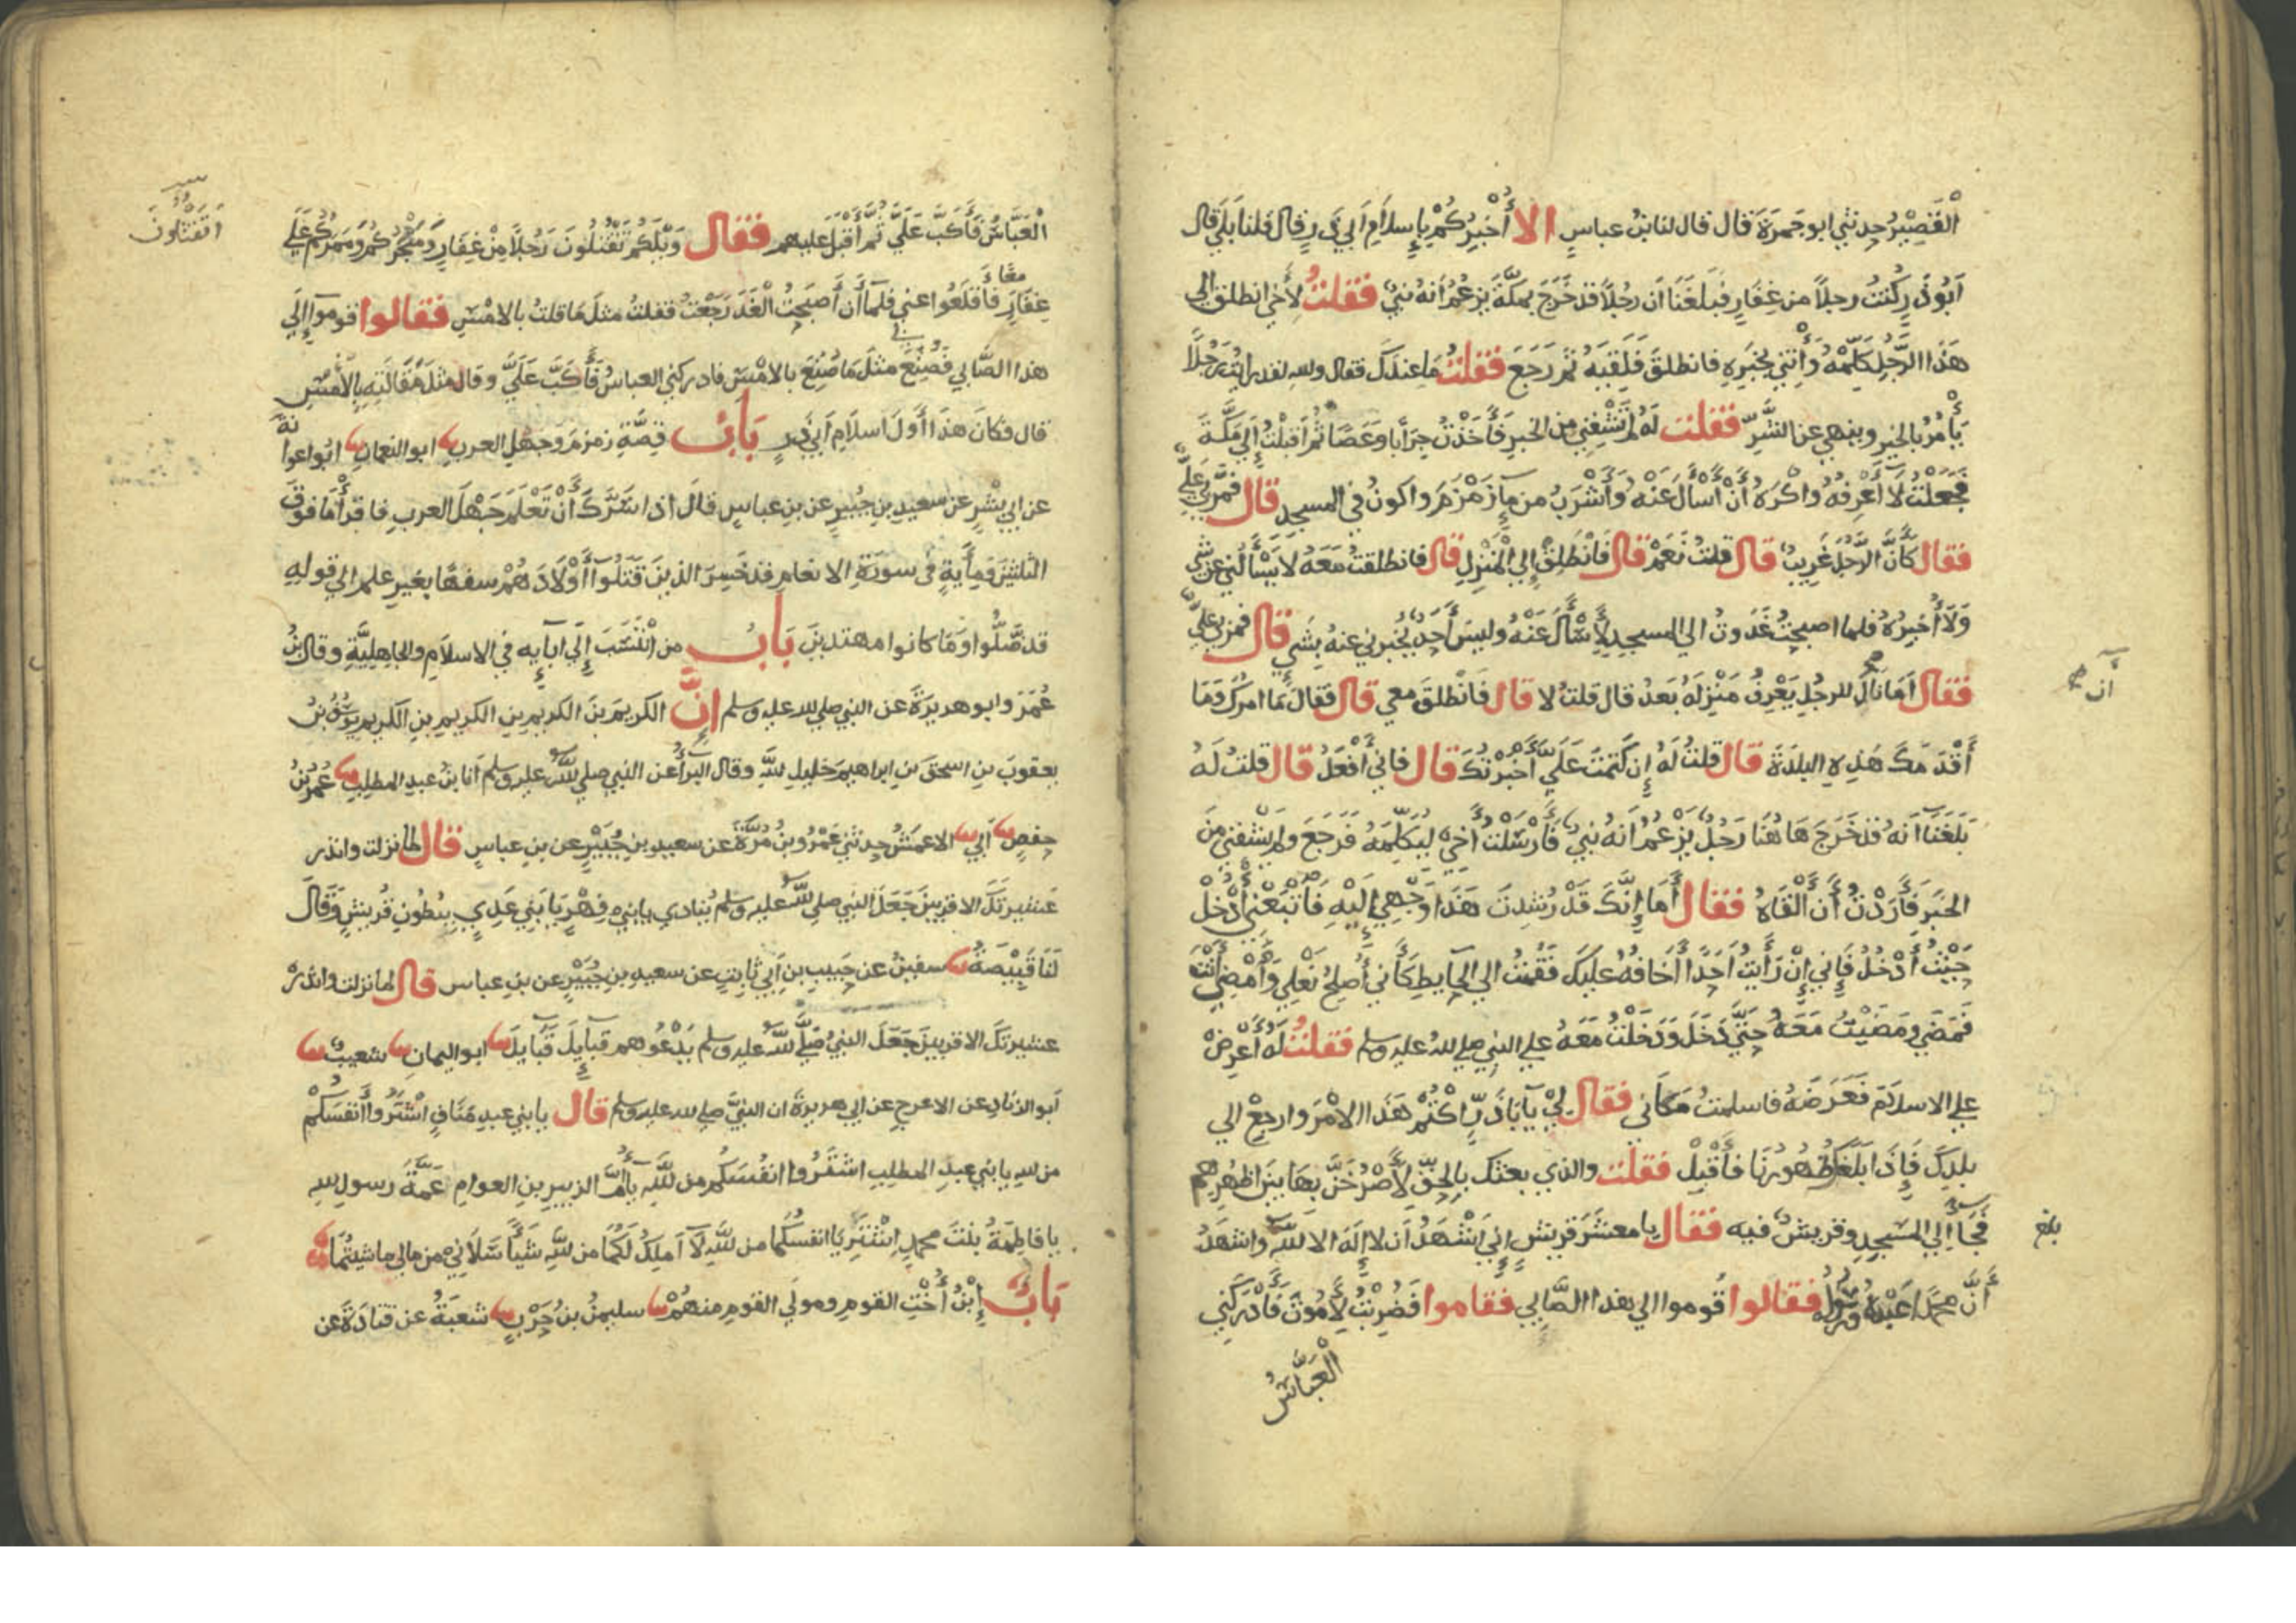 الْقَصِيْرُ حدثني ابو جَمرَةَ قال قال لنا بنُ عباسٍ الا أُخْبِرُكُمْ بِإِسلَامِ أبي ذَرٍ قال قلنا بَلَي قال
أبُوذَرٍ كُنتُ رجلاً من غِفَارٍ فَبَلَغَنَا أن رجُلاً قد خَرَجَ بمكَّةَ يزعُمُ أنهُ نبيٌ فقلتُ لأخي انطلق الي
هَذَا الرَّجُلِ كَلِّمْهُ وَأْتِني بخَبَرِهِ فانطلقَ فَلَقِيَهُ ثم رَجَعَ فقلتُ مَا عندكَ فقال والله لقد رايتُ رَجُلًا
يَأْمُرُ بالخيرِ وينهي عن الشَّرِّ فقلت لَهُ لم تَشْفِني من الخبرِ فَأَخَذْتُ جِرَابًا وعَصًا ثم اقبلتُ إلي مكَّةَ
فجعلتُ لَا أَعرِفُهُ واكْرَهُ أَنْ أَسأَلَ عَنْهُ وَأَشْرَبُ من مآءِ زَمْزَمَ واكونُ في المسجد قال فَمَرَّ بي عَلِيٌّ
فقال كأنَّ الرَّجُلَ غَرِيبٌ قال قلتُ نَعَمْ قال فَانْطَلِقْ إلي الْمَنْزِلِ قال فانطلقتُ مَعَهُ لا يَسْأَلُني عن شيٍ
وَلَا أُخبِرُهُ فلما اصبحتُ غَدَوتُ الي المسجدِ لِأَسْأَلَ عَنْهُ وليسَ أَحَدٌ يُخبرني عنهُ بِشَيءٍ قال فمر بي عليٌّ
فقال أَمَا نَالَ للرجُلِ يَعْرِفُ مَنْزِلَهُ بَعدُ قال قلتُ لا قال فَانْطلقَ معي قال فَقَالَ مَا امرُكَ وَمَا
أَقْدَمَكَ هَذِهِ البلدَةَ قال قلتُ لَهُ إن كَتَمْتَ عَلَيَّ أَخْبَرْتُكَ قال فاني أَفْعَلُ قال قلت لَهُ
بَلَغَنَا أنه قد خَرَجَ هَا هُنَا رَجُلٌ يزعُمُ أنهُ نبيٌ فَأَرْسَلْتُ أَخِي لِيُكَلِّمَهُ فَرَجَعَ ولم يَشْفِني من
الخَبَرِ فَأَرَدْتُ أَن أَلْقَاهُ فقال أَمَا إِنَّكَ قَدْ رُشِدتَ هَذَا وَجْهي إِلَيْهِ فَاتَّبِعْني أُدْخُلْ
حَيْثُ أَدْخُلُ فَإِني إِنْ رَأَيتُ أَحَدًا أَخَافُهُ عليكَ فَقُمْتُ الي الحَايطِ كَأَني أُصلِحُ نَعْلي وَأَمْضِ أَنْتَ
فَمَضَي وَمَضَيْتُ مَعَهُ حتَّي دَخَلَ وَدَخَلْتُ مَعَهُ علي النبي صلي الله عليه وسلم فقلتُ لَهُ أعْرِضْ
علي الاسلامَ فَعَرَضَهُ فاسلمتُ مكاني فقال لِيْ يَآ بَا ذَرٍّ اكْتُمْ هَذَا الأمْرَ وارجِعْ الي
بلدِكَ فَإِذَا بَلَغَكَ ظُهورُنَا فأقْبِل فقلت والذي بعثك بالحقِّ لأَصْرُخَنَّ بهَا بينَ اظهُرِهِم
فجَأَ إلي المسجدِ وقريشٌ فيه فقال يا معشَرَ قريشٍ إِني أَشْهَدُ أن لا إلَهَ الا الله واشهَدُ
أنَّ محمدًا عَبْدُهُ ورسولهُ فقالوا قُوموا الي هذا الصَّابي فقاموا فَضُرِبْتُ لِأَمُوتَ فَأَدْرَكَني
العَبَّاسُ
ان
بلغ
العَبَّاسُ فَأَكَبَّ عَلَيَّ ثُمَّ أَقْبَلَ عليهم فقال وَيْلَكُم تَقْتُلُونَ رَجُلاً مِنْ غِفَارٍ وَمَتْجَرُكُم وَمَمَرُّكُم عَلَي
غِفَارٍ فَأَقلَعُوا عني فلمآ أَن أَصبَحتُ الْغَدَ رَجَعْتُ فقلتُ مثلَ مَا قلتُ بالامْسِ فقالوا قوموآ إلَي
هذا الصَّابي فَصُنِعَ مثلَ مَا صُنِعَ بالامْسِ فادركني العباسُ فَأَكَبَّ عَلَيَّ وقال مثلَ مَقَالَتِهِ بالأَمْسِ
قال فكانَ هذَا أَوَّلَ اسلَامِ أبي ذرٍ بَابُ قِصَّةِ زمزمَ وجهلِ العربِ ابو النعمانِ ابو اعوانة
عن ابي بِشْرٍ عن سعيدِ بنِ جُبيرٍ عن بنِ عباسٍ قالَ اذا سَرَّكَ أَنْ تَعْلَمَ جَهْلَ العربِ فاقرأْ مَا فوقَ
الثلثينَ ومِأَيةٍ في سورَةِ الانعامِ قد خَسِرَ الذينَ قَتَلُوآ أَوْلَادَهُمْ سفهًا بغيرِ علمٍ الي قولهِ
قد ضَّلُّوا وَمَا كانوا مهتدينَ بَابُ من انْتَسَبَ إِلَي آبآيِهِ في الاسلَامِ والجاهِلِيَّةِ وقال بنُ
عُمَرَ وابو هريرَةَ عن النبي صلي الله عليه وسلم إنَّ الكريمَ بنَ الكريمِ بنِ الكريمِ بنِ الكريم يوسُفُ بنُ
يعقوبَ بنِ اسحقَ بنِ ابراهيمَ خليلِ اللهِ وقال البرأُ عن النبي صلي الله عليه وسلم أنا بنُ عبدِ المطلبِ عُمَرُ بنُ
حفصٍ أَبي الاعمَشُ حدثني عَمْرُو بنُ مُرَّةَ عن سعيدِ بنِ جُبَيْرٍ عن بنِ عباسٍ قال لما نزلت وانذر
عَشيرتَكَ الاقربينَ جَعَلَ النبي صلي الله عليه وسلم يُنادي يا بني فِهْرٍ يَا بَني عَدِيٍ بِبُطُونِ قُريشٍ وَقَالَ
لَنَا قَبِيصَةُ سفينُ عن حَبيبِ بنِ أَبي ثابتٍ عن سعيدِ بنِ جُبَيْرٍ عن بنِ عباس قال لما نزلت وانذر
عشيرتَكَ الاقربينَ جَعَلَ النبيُ صَلَّي الله عليه وسلم يَدْعُوهم قبآيِلَ قبآيلَ ابو اليمانِ شعيبٌ
أبو الزنادِ عن الاعرجِ عن ابي هريرةَ ان النبيَّ صلي الله عليه وسلم قال يا بني عبدِ مَنَافٍ اشْتَرُوآ أَنفُسَكُمْ
من الله يا بني عبدِ المطلبِ اشتَرُوا انفُسَكُم من اللهِ يآ أُمَّ الزبيرِ بنِ العوامِ عَمَّةَ رسولِ الله
يا فاطِمَةُ بنتَ محمدٍ اشْتَرِيَا انفسَكُمَا من اللهِ لآ أَملِكُ لَكُمَا من اللهِ شَيًّا سَلَاني من مالي ما شيتُمَا
بَابُ إبْنُ أُخْتِ القومِ ومولَي القومِ منهُمْ سليمنُ بنُ حَرْبٍ شعبَةُ عن قتادَةَ عن
أتَقْتُلُونَ